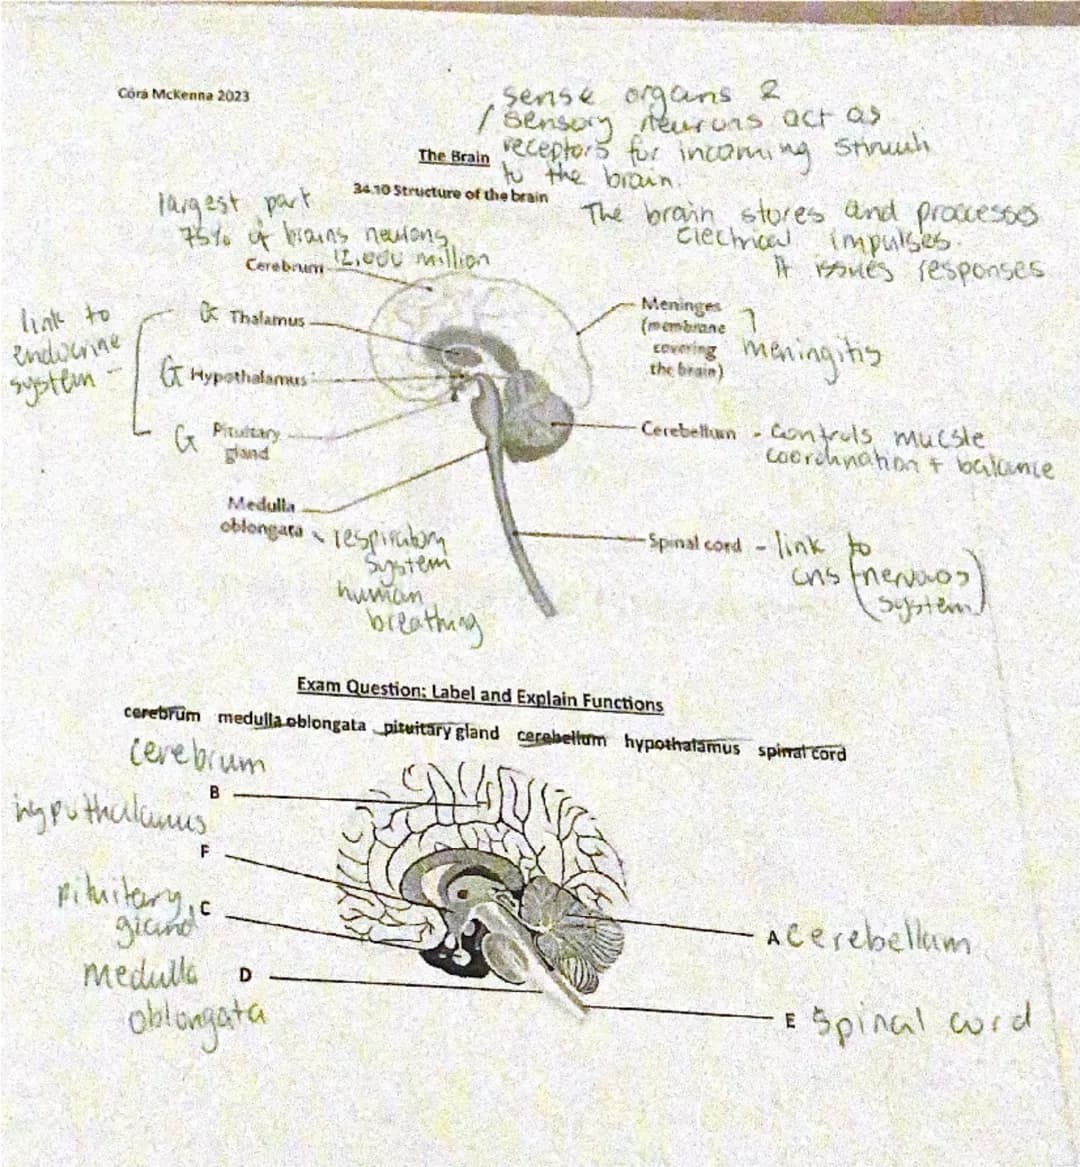 Cora McKenna 2023
sense organs &
/ sensory neurons act as
receptors for incoming stimuli
to the brain.
The Brain
34.10 Structure of the brain
The brain stores and proccesses
electrical impulses.
It issues responses
largest part
75% of brains neurons
12,000 million
Cerebrum
link to
endocrine
system -
G Thalamus
G Hypothalamus
G Pituitary
gland
Medulla
oblongata
respiratory
system
human
breathing
Meninges
(membrane
covering
the brain)
meningitis
Cerebellum - Controls mucsle
coordination + balance
Spinal cord - link to
cns (nervous
system)
Exam Question: Label and Explain Functions
cerebrum medulla oblongata pituitary gland cerebellum hypothalamus spinal cord
cerebrum
B
hypothalamus
F
pituitary
gland
C
medulla
oblongata
D
A Cerebellum
E Spinal cord